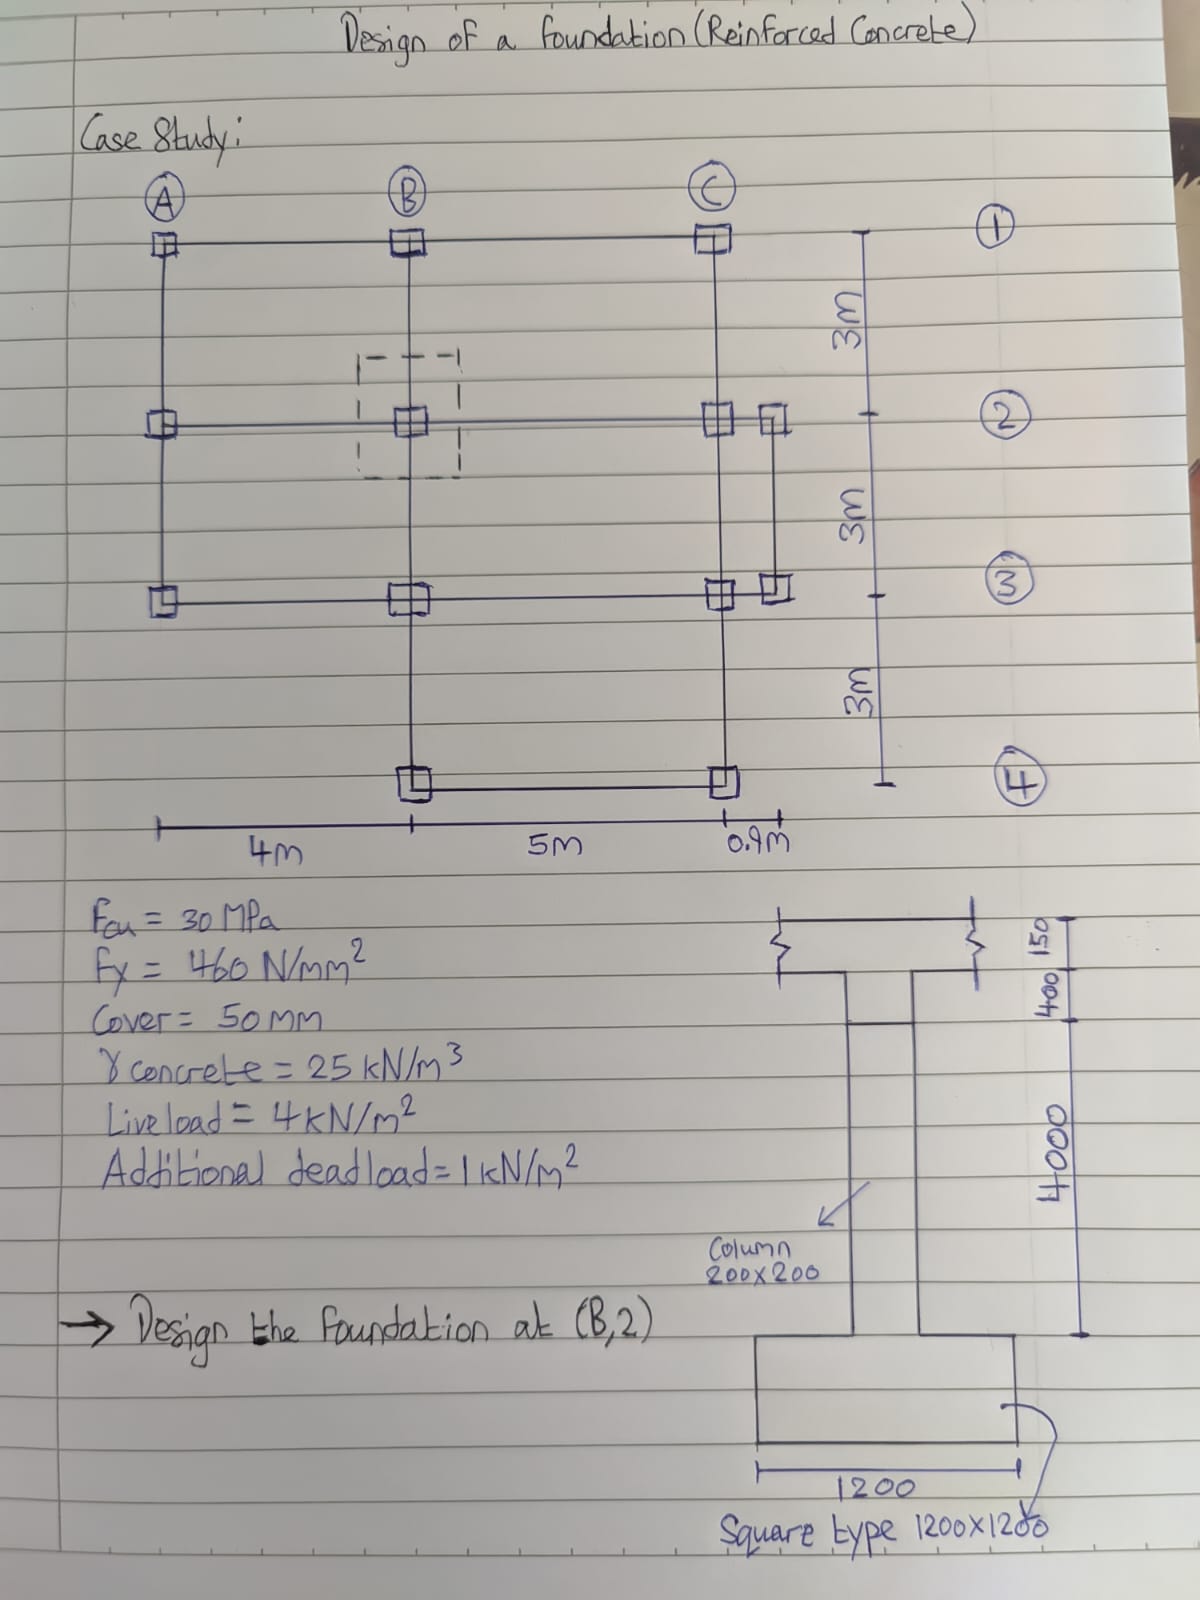 Design of a foundation (Reinforced Concrete)
Case Study:
A
B
C
1
3m
2
3m
3
3m
4
4m
5m
0.9m
Fcu = 30 MPa
Fy = 460 N/mm²
Cover = 50mm
γ concrete = 25 kN/m³
Live load = 4 kN/m²
Additional dead load = 1 kN/m²
150
400
4000
Column
200x200
→ Design the foundation at (B,2)
1200
Square type 1200x1200